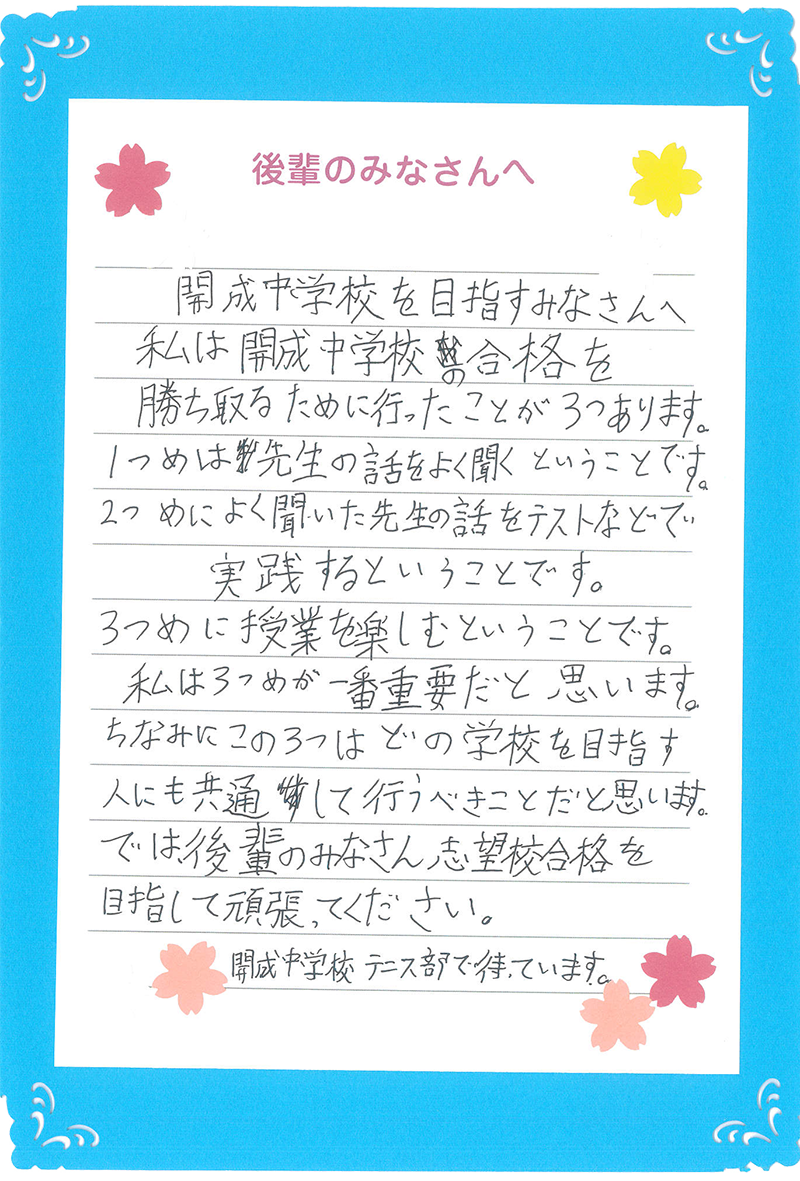 後輩のみなさんへ
開成中学校を目指すみなさんへ
私は開成中学校の合格を
勝ち取るために行ったことが3つあります。
1つめは先生の話をよく聞くということです。
2つめによく聞いた先生の話をテストなどで
実践するということです。
3つめに授業を楽しむということです。
私は3つめが一番重要だと思います。
ちなみにこの3つはどの学校を目指す
人にも共通して行うべきことだと思います。
では、後輩のみなさん、志望校合格を
目指して頑張ってください。
開成中学校テニス部で待っています。